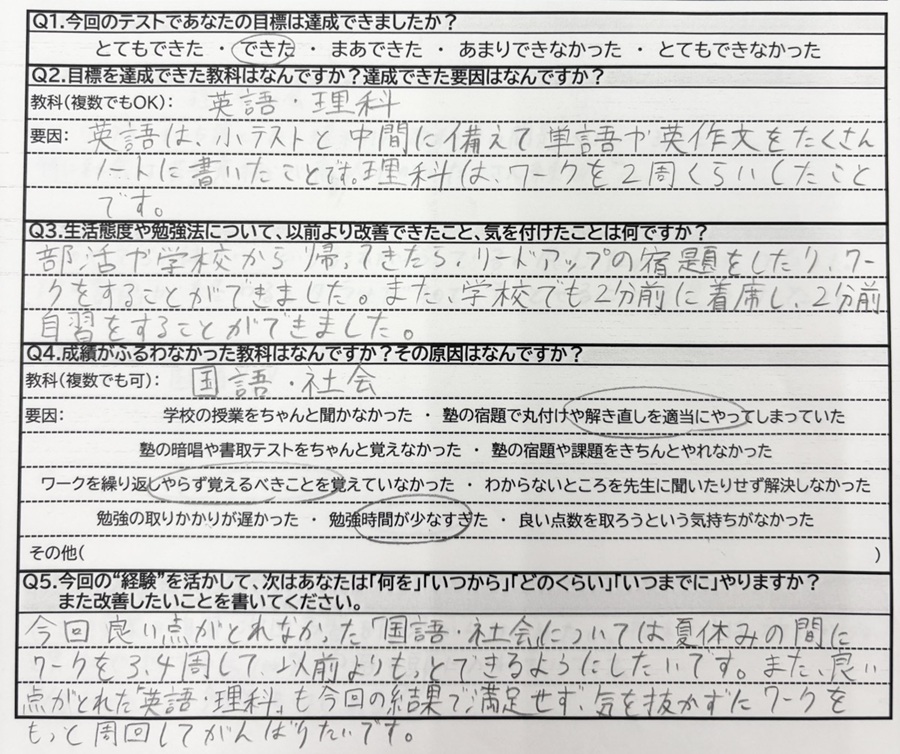 Q1.今回のテストであなたの目標は達成できましたか？
とてもできた ・ できた ・ まあできた ・ あまりできなかった ・ とてもできなかった
Q2.目標を達成できた教科はなんですか？達成できた要因はなんですか？
教科(複数でもOK)： 英語・理科
要因： 英語は、小テストと中間に備えて単語や英作文をたくさん
ノートに書いたことです。理科は、ワークを2周くらいしたこと
です。
Q3.生活態度や勉強法について、以前より改善できたこと、気を付けたことは何ですか？
部活や学校から帰ってきたら、リードアップの宿題をしたり、ワー
クをすることができました。また、学校でも2分前に着席し、2分前
自習をすることができました。
Q4.成績がふるわなかった教科はなんですか？その原因はなんですか？
教科(複数でも可)： 国語・社会
要因： 学校の授業をちゃんと聞かなかった ・ 塾の宿題で丸付けや解き直しを適当にやってしまっていた
塾の暗唱や書取テストをちゃんと覚えなかった ・ 塾の宿題や課題をきちんとやれなかった
ワークを繰り返しやらず覚えるべきことを覚えていなかった ・ わからないところを先生に聞いたりせず解決しなかった
勉強の取りかかりが遅かった ・ 勉強時間が少なすぎた ・ 良い点数を取ろうという気持ちがなかった
その他( )
Q5.今回の“経験”を活かして、次はあなたは「何を」「いつから」「どのくらい」「いつまでに」やりますか？
また改善したいことを書いてください。
今回良い点がとれなかった「国語・社会」については夏休みの間に
ワークを3、4周して、以前よりもっとできるようにしたいです。また、良い
点がとれた「英語・理科」も今回の結果で満足せず、気を抜かずにワークを
もっと周回してがんばりたいです。